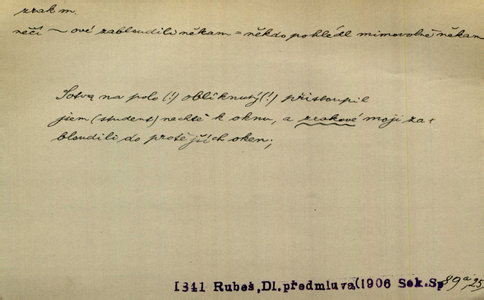 zrak m.
něčí ~ ové zabloudili někam = někdo pohlédl mimovolně někam
Sotva na polo (!) obliknutý (!) přistoupil
jsem (student) nechtě k oknu, a zrakové moji za=
bloudili do protějších oken;
1841 Rubeš, Dl. předmluva (1906 Sek. Sp
89a/25